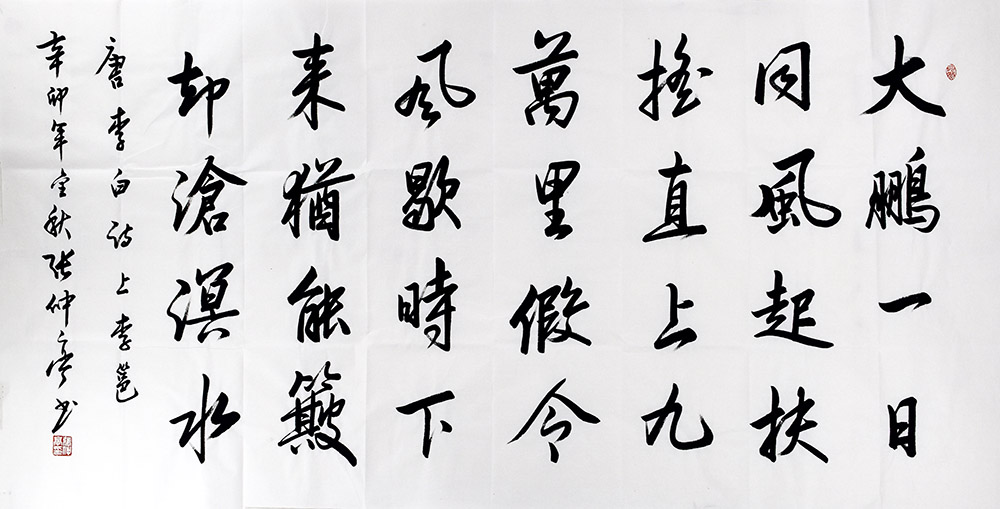 大鵬一日
同風起扶
搖直上九
萬里假令
風歇時下
来猶能簸
却滄溟水
唐李白诗上李邕
辛卯年金秋张仲亭书